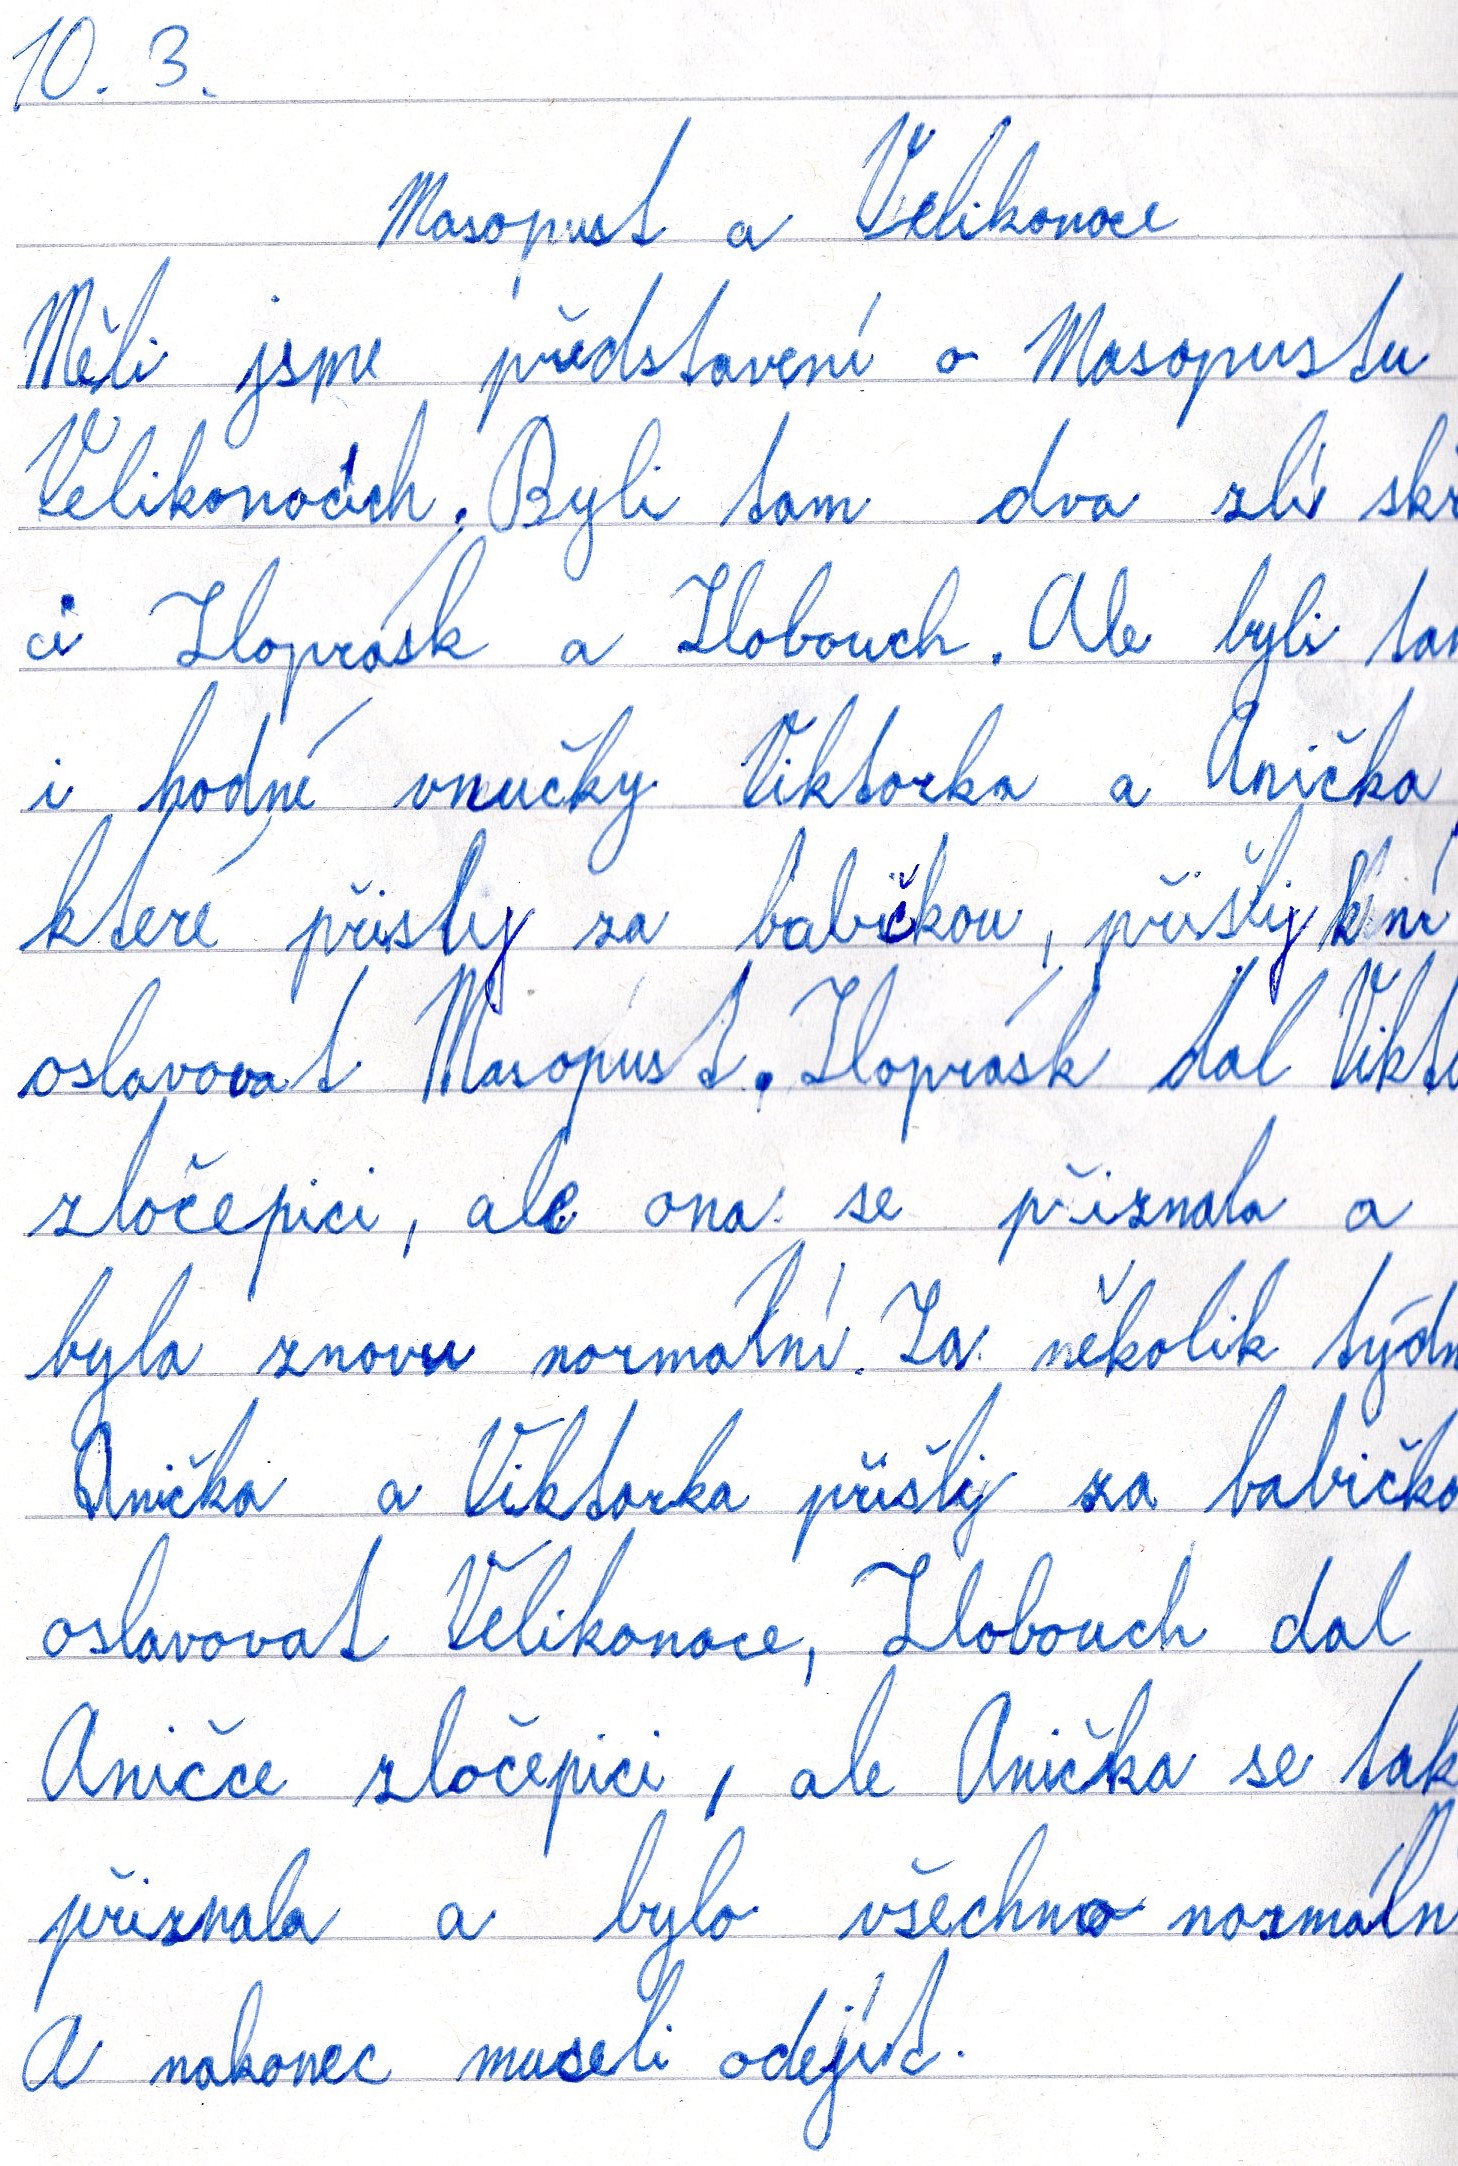 10. 3.
Masopust a Velikonoce
Měli jsme představení o Masopustu
Velikonocích. Byli tam dva zlí skř
ci Zloprask a Zlobouch. Ale byli tam
i hodné vnučky Viktorka a Anička,
které přisly za babičkou, přišly k ní
oslavovat Masopust. Zloprásk dal Vikto
zločepici, ale ona se přiznala a
byla znovu normální. Za několik týdn
Anička a Viktorka přišly za babičko
oslavovat Velikonoce, Zlobouch dal
Aničce zločepici, ale Anička se tak
přiznala a bylo všechno normáln
A nakonec museli odejít.